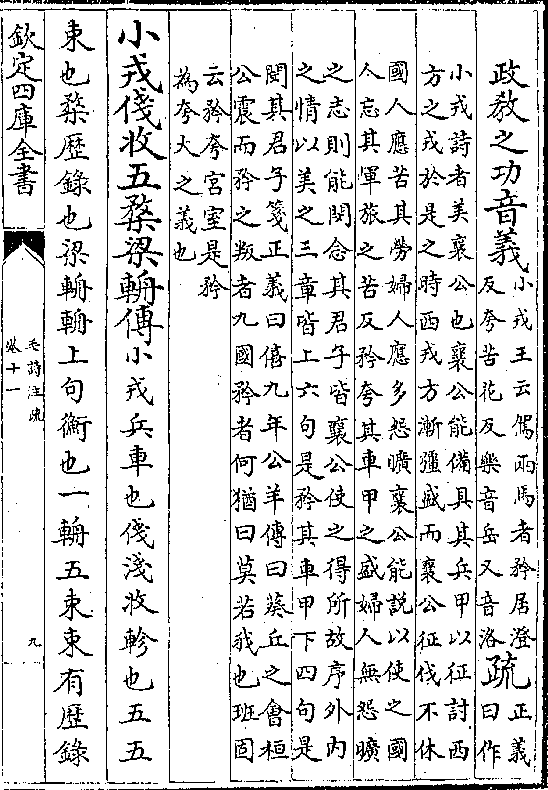 政教之功音義小戎王云駕兩馬者矜居澄
反夸苦花反樂音岳又音洛疏正義
曰作
小戎詩者美襄公也襄公能備具其兵甲以征討西
方之戎於是之時西戎方漸强盛而襄公征伐不休
國人應苦其勞婦人應多怨曠襄公能說以使之國
人忘其軍旅之苦反矜夸其車甲之盛婦人無怨曠
之志則能閔念其君子皆襄公使之得所故序外内
之情以美之三章皆上六句是矜其車甲下四句是
閔其君子箋正義曰僖九年公羊傳曰葵丘之會桓
公震而矜之叛者九國矜者何猶曰莫若我也班固
云矜夸宫室是矜
為夸大之義也
小戎俴收五楘梁輈傳小戎兵車也俴淺收軫也五五
束也楘歴錄也梁輈輈上句衡也一輈五束束有歴錄
欽定四庫全書
毛詩注疏
卷十一
九